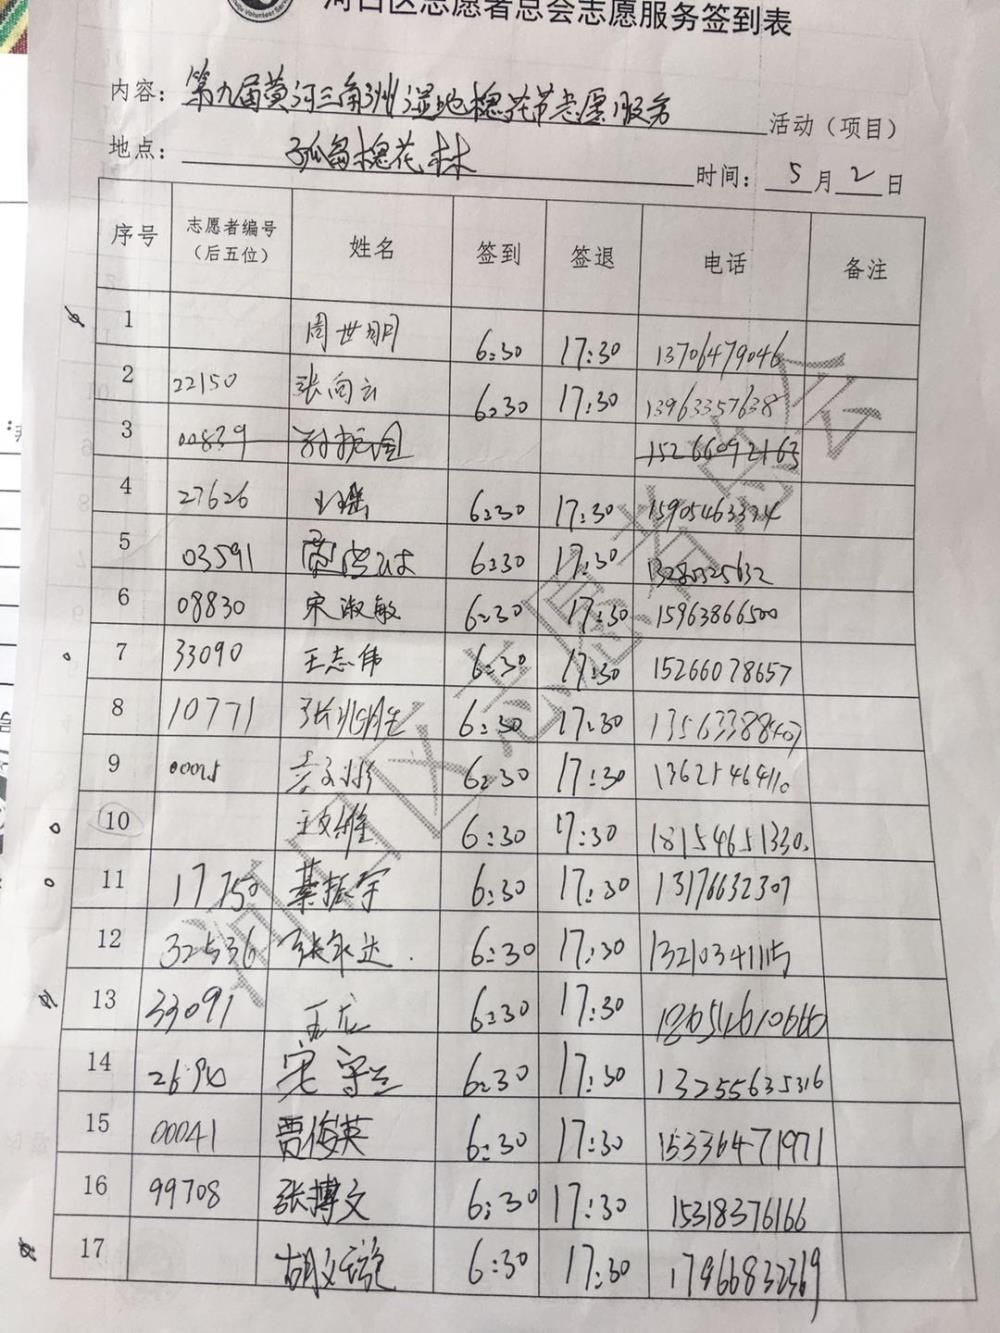 河口区志愿者总会志愿服务签到表
内容：第九届黄河三角洲湿地槐花节志愿服务 活动（项目）
地点：孤岛槐花林 时间：5月2日
序号 志愿者编号（后五位） 姓名 签到 签退 电话 备注
1 周世明 6:30 17:30 13706479046
2 22150 张向云 6:30 17:30 13963357638
3 00839 15266092163
4 27626 王瑶 6:30 17:30
5 03591 6:30 17:30
6 08830 宋淑敏 6:30 17:30 15963866500
7 33090 王志伟 6:30 17:30 15266078657
8 10771 6:30 17:30
9 6:30 17:30
10 王文雅 6:30 17:30 18154651330
11 17750 綦振宇 6:30 17:30 13176632307
12 32536 张永达 6:30 17:30 13210341115
13 33091 6:30 17:30
14 6:30 17:30 13255635316
15 00041 贾俊英 6:30 17:30 15336471971
16 99708 张博文 6:30 17:30 15318376166
17 胡文璇 6:30 17:30 17966832369
河口区志愿者总会